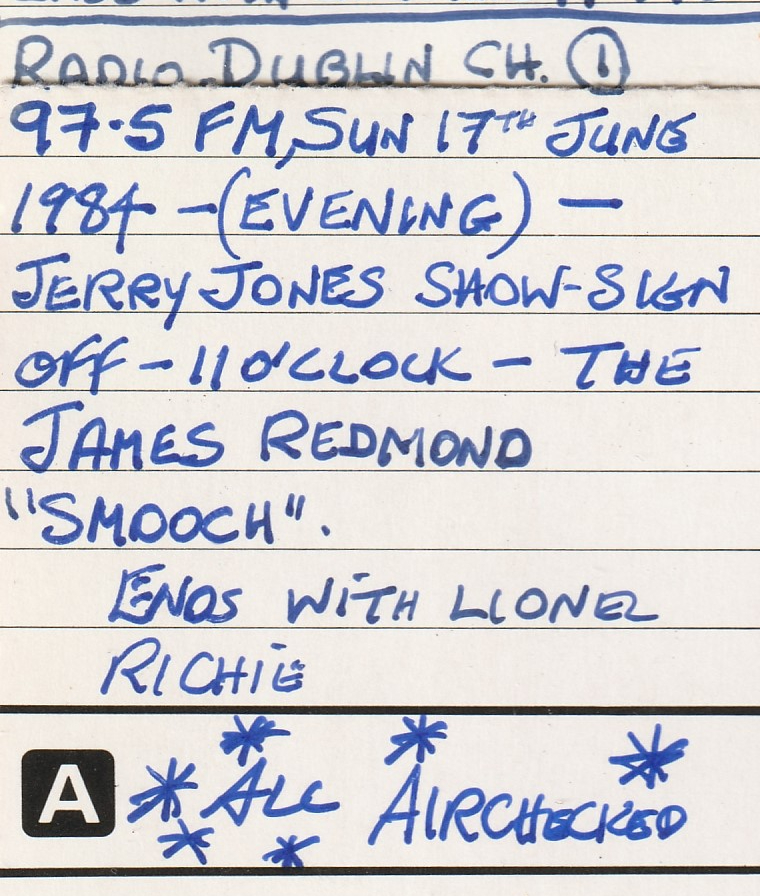 RADIO DUBLIN CH. 1
97.5 FM, SUN 17TH JUNE
1984 - (EVENING) -
JERRY JONES SHOW-SIGN
OFF - 11 O'CLOCK - THE
JAMES REDMOND
"SMOOCH".
ENDS WITH LIONEL
RICHIE
A * ALL AIRCHECKED